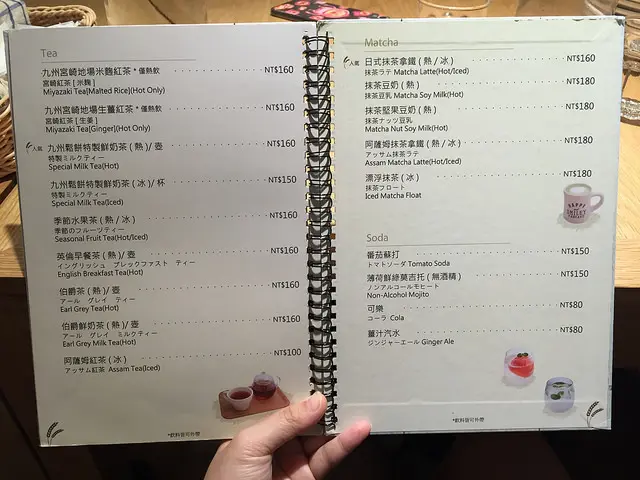 Tea
九州宮崎地場米麴紅茶 * 僅熱飲 NT$160
宮崎紅茶 [ 米麹 ]
Miyazaki Tea[Malted Rice](Hot Only)
九州宮崎地場生薑紅茶 * 僅熱飲 NT$160
宮崎紅茶 [ 生姜 ]
Miyazaki Tea[Ginger](Hot Only)
人氣 九州鬆餅特製鮮奶茶 ( 熱 )/ 壺 NT$160
特製ミルクティー
Special Milk Tea(Hot)
九州鬆餅特製鮮奶茶 ( 冰 )/ 杯 NT$150
特製ミルクティー
Special Milk Tea(Iced)
季節水果茶 ( 熱 / 冰 ) NT$160
季節のフルーツティー
Seasonal Fruit Tea(Hot/Iced)
英倫早餐茶 ( 熱 )/ 壺 NT$160
イングリッシュ ブレックファスト ティー
English Breakfast Tea(Hot)
伯爵茶 ( 熱 )/ 壺 NT$160
アール グレイ ティー
Earl Grey Tea(Hot)
伯爵鮮奶茶 ( 熱 )/ 壺 NT$160
アール グレイ ミルクティー
Earl Grey Milk Tea(Hot)
阿薩姆紅茶 ( 冰 ) NT$100
アッサム紅茶 Assam Tea(Iced)
*飲料皆可外帶
Matcha
人氣 日式抹茶拿鐵 ( 熱 / 冰 ) NT$160
抹茶ラテ Matcha Latte(Hot/Iced)
抹茶豆奶 ( 熱 ) NT$180
抹茶豆乳 Matcha Soy Milk(Hot)
抹茶堅果豆奶 ( 熱 ) NT$180
抹茶ナッツ豆乳
Matcha Nut Soy Milk(Hot)
阿薩姆抹茶拿鐵 ( 熱 / 冰 ) NT$180
アッサム抹茶ラテ
Assam Matcha Latte(Hot/Iced)
漂浮抹茶 ( 冰 ) NT$180
抹茶フロート
Iced Matcha Float
Soda
番茄蘇打 NT$150
トマトソーダ Tomato Soda
薄荷鮮綠莫吉托 ( 無酒精 ) NT$150
ノンアルコールモヒート
Non-Alcohol Mojito
可樂 NT$80
コーラ Cola
薑汁汽水 NT$80
ジンジャーエール Ginger Ale
*飲料皆可外帶